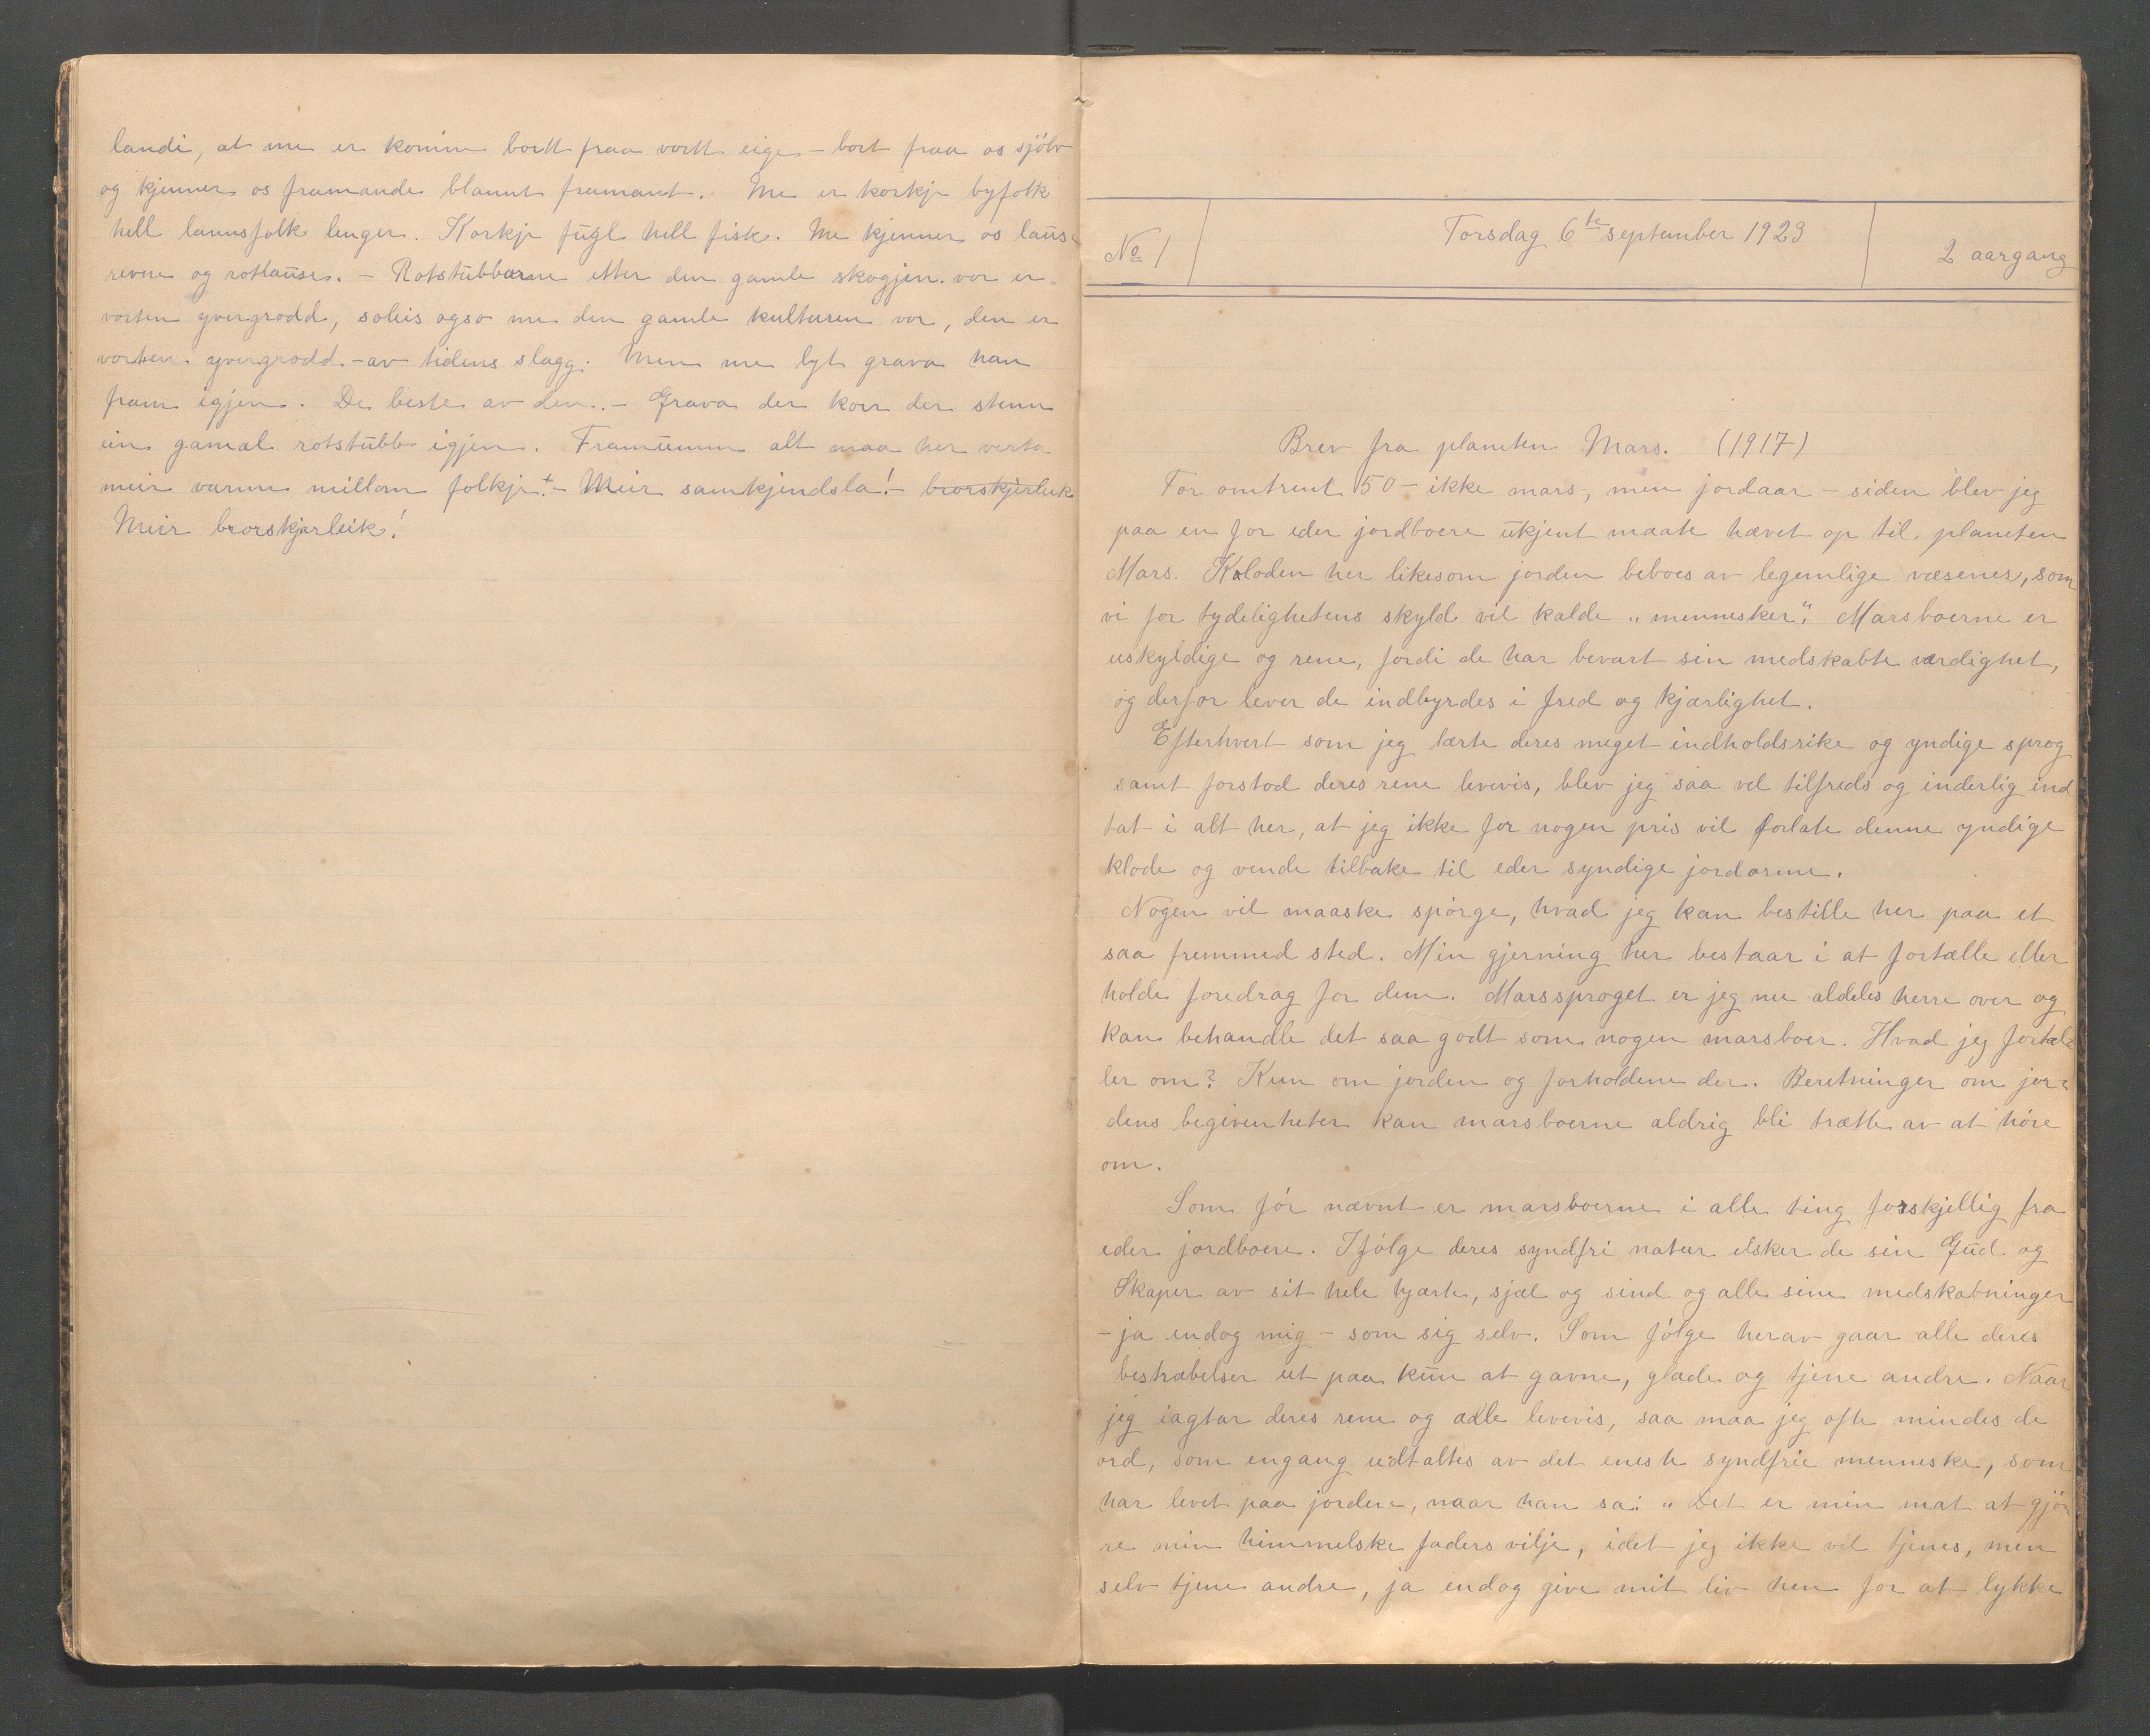 landi, at me er komin bortt fraa vortt eige - bort fraa os sjölv
og kjenner os framande blannt framant. Me er korkje byfolk
hell lannsfolk lenger. Korkje fugl hell fisk. Me kjenner os laus-
revne og rotlause. - Rotstubbarne etter den gamle skogjen vor er
vorten yvergrodd, soleis ogso me den gamle kulturen vor, den er
vorten yvergrodd - av tidens slagg. Men me lyt grava han
fram igjen. De beste av den. - Grava der korr der stenn
ein gamal rotstubb igjen. Framumm alt maa her verta
meir varme millom folkje! - Meir samkjendsla! - brorskjerleik
Meir brorskjærleik!
No 1
Torsdag 6te september 1923
2 aargang
Brev fra planeten Mars. (1917)
For omtrent 50 - ikke mars-, men jordaar - siden blev jeg
paa en for eder jordboere ukjent maate hævet op til planeten
Mars. Kloden her likesom jorden beboes av legemlige væsener, som
vi for tydelighetens skyld vil kalde "mennesker". Marsboerne er
uskyldige og rene, fordi de har bevart sin medskabte værdighet,
og derfor lever de indbyrdes i fred og kjærlighet.
Efterhvert som jeg lærte deres meget indholdsrike og yndige sprog
samt forstod deres rene levevis, blev jeg saa vel tilfreds og inderlig ind
tat i alt her, at jeg ikke for nogen pris vil forlate denne yndige
klode og vende tilbake til eder syndige jordorme.
Nogen vil maaske spörge, hvad jeg kan bestille her paa et
saa fremmed sted. Min gjerning her bestaar i at fortælle eller
holde foredrag for dem. Marssproget er jeg nu aldeles herre over og
kan behandle det saa godt som nogen marsboer. Hvad jeg fortæl-
ler om? Kun om jorden og forholdene der. Beretninger om jor-
dens begivenheter kan marsboerne aldrig bli trætte av at höre
om.
Som för nævnt er marsboerne i alle ting forskjellig fra
eder jordboere. Ifölge deres syndfri natur elsker de sin Gud og
Skaper av sit hele hjærte, sjæl og sind og alle sine medskabninger
- ja endog mig - som sig selv. Som fölge herav gaar alle deres
bestræbelser ut paa kun at gavne, glæde og tjene andre. Naar
jeg iagtar deres rene og ædle levevis, saa maa jeg ofte mindes de
ord, som engang udtaltes av det eneste syndfrie menneske, som
har levet paa jorden, naar han sa: "Det er min mat at gjö-
re min himmelske faders vilje, idet jeg ikke vil tjenes, men
selv tjene andre, ja endog give mit liv hen for at lykke